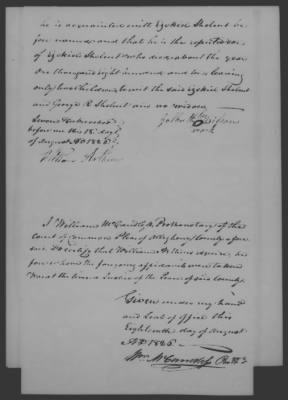 he is acquainted with Ezekiel Skolent be
fore named and that he is the reputed son
of Ezekiel Skolent who died about the year
One thousand eight hundred and ten leaving
only two children to wit the said Ezekiel Skolent
and George R. Skolent and no widow
Sworn & subscribed
before me this 18 day
of August AD 1825
his
mark
William
I William McCandless, Prothonotary of the
Court of common Pleas of Allegheny County afore
said Do certify that William
before whom the foregoing affidavits were taken
was at the time a Justice of the Peace of said County
Given under my hand
and Seal of Office this
Eighteenth day of August
AD 1825
Wm McCandless Proty